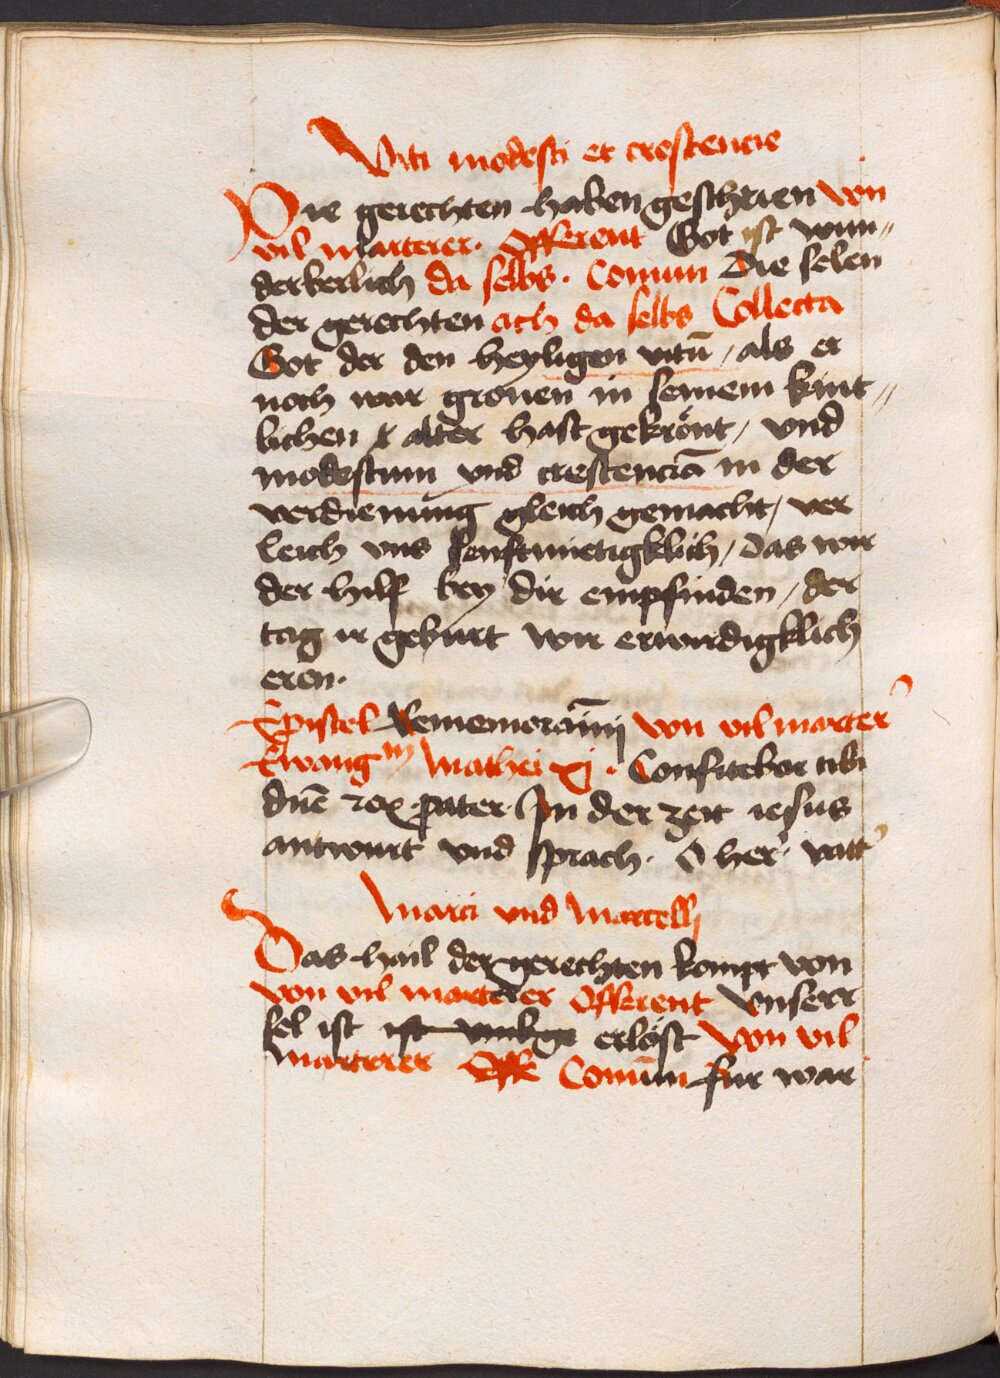 Viti modesti et crestencie
Die gerechten haben geschrien von
vil marterer. Offerent Got ist wun„
derberlich da selbs. Comun Die selen
der gerechten ach da selbs Collecta
Got der den heyligen vitū / als er
noch war gronen in seinem kint„
lichen alter hast gekrönt / vnd
modestum vnd crestenciā in der
verdienung gleich gemacht / ver
leich vns senftmietigklich / das wir
der hilf bey dir empfinden / der
tag ir geburt wir erwirdigklich
eren.
Epistel Rememoramini von vil marter
Ewangm Mathei xj. Confitebor tibi
dn̄e rex pater. In der zeit iesus
antwurt vnd sprach. O her vatt
Marci vnd Marcelli
Das hail der gerechten kompt von
von vil marterer Offerent Vnserr
sel ist ist erlöst von vil
marterer Off Comun fur war